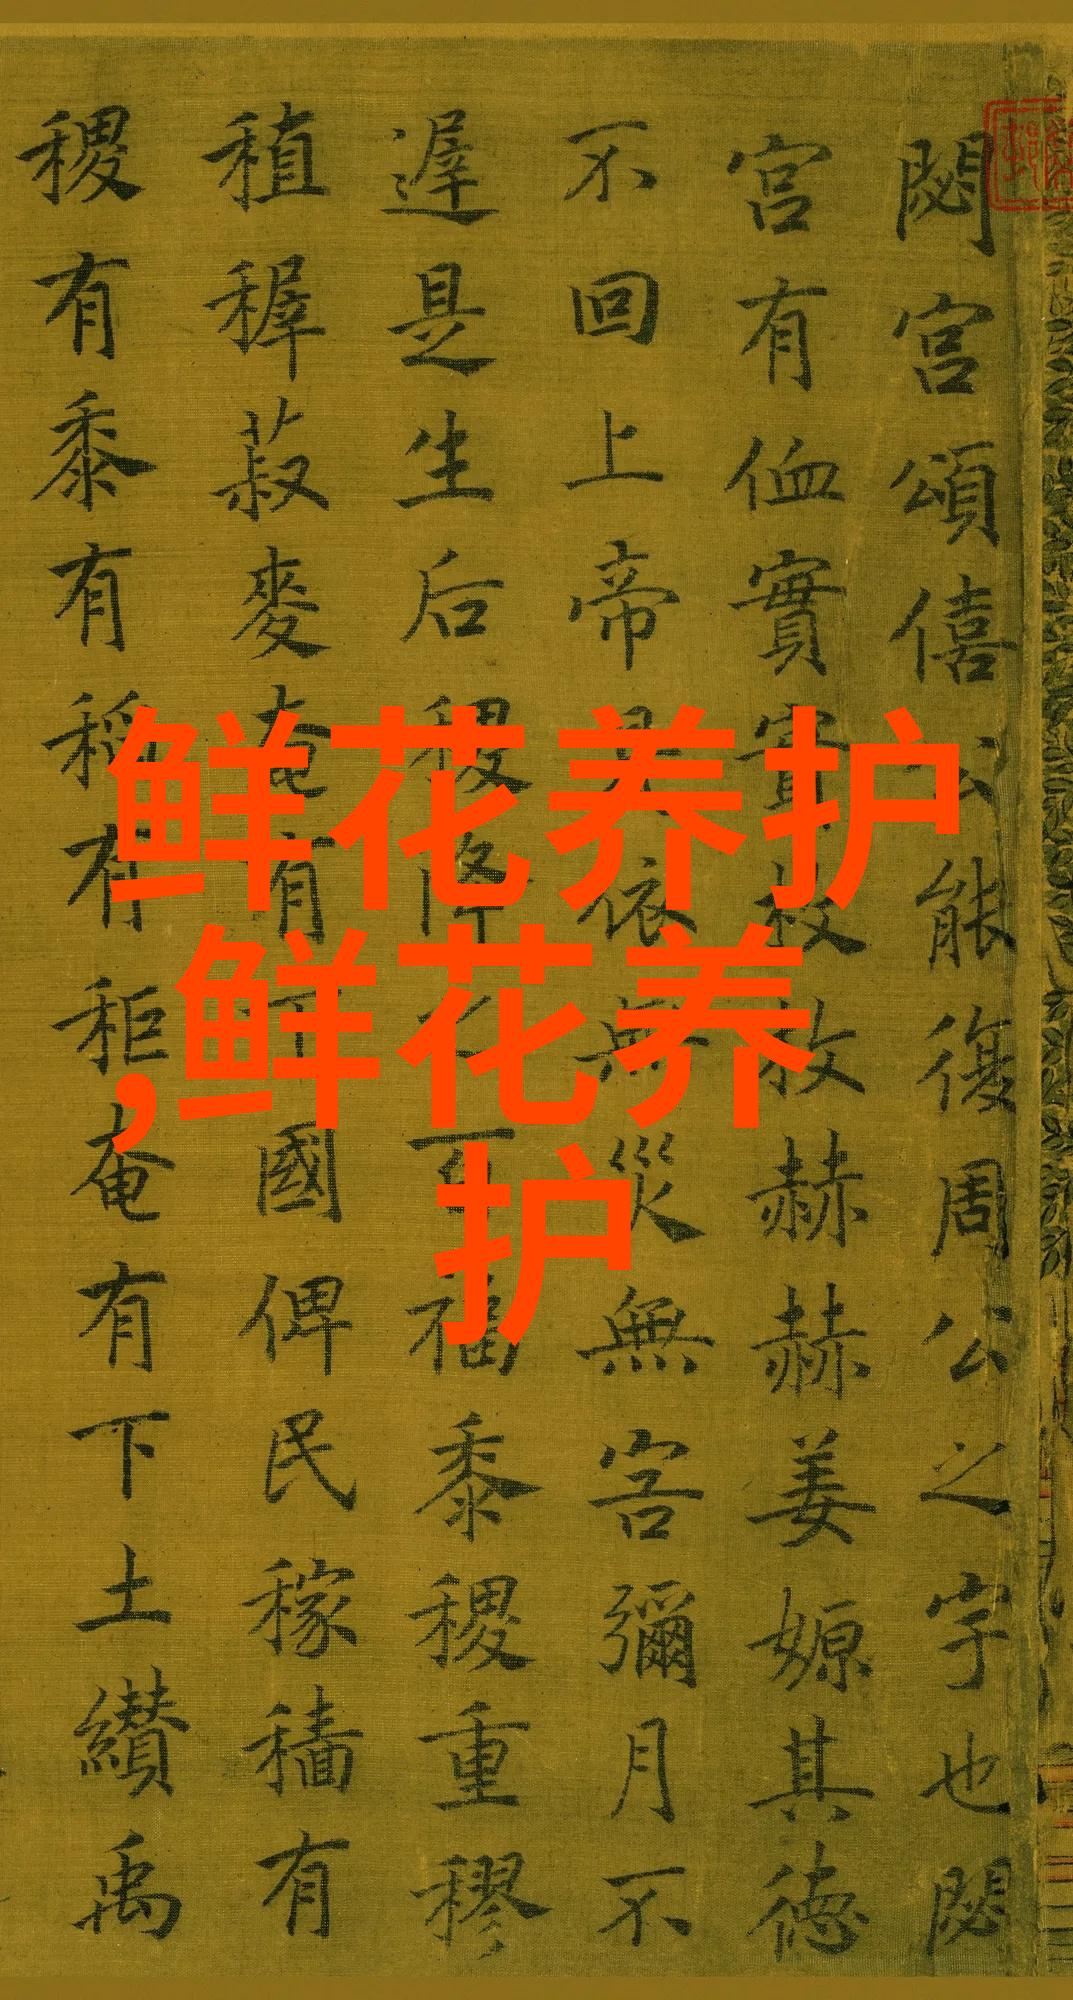 閟宮頌僖公能復周公之宇也閟
宮有侐實實枚枚赫赫姜嫄其德
不回上帝是依無災無害彌月不
遲是生后稷降之百福黍稷重穋
稙稺菽麥奄有下國俾民稼穡有
稷有黍有稻有秬奄有下土纘禹
鲜花养护
,鲜花养
护